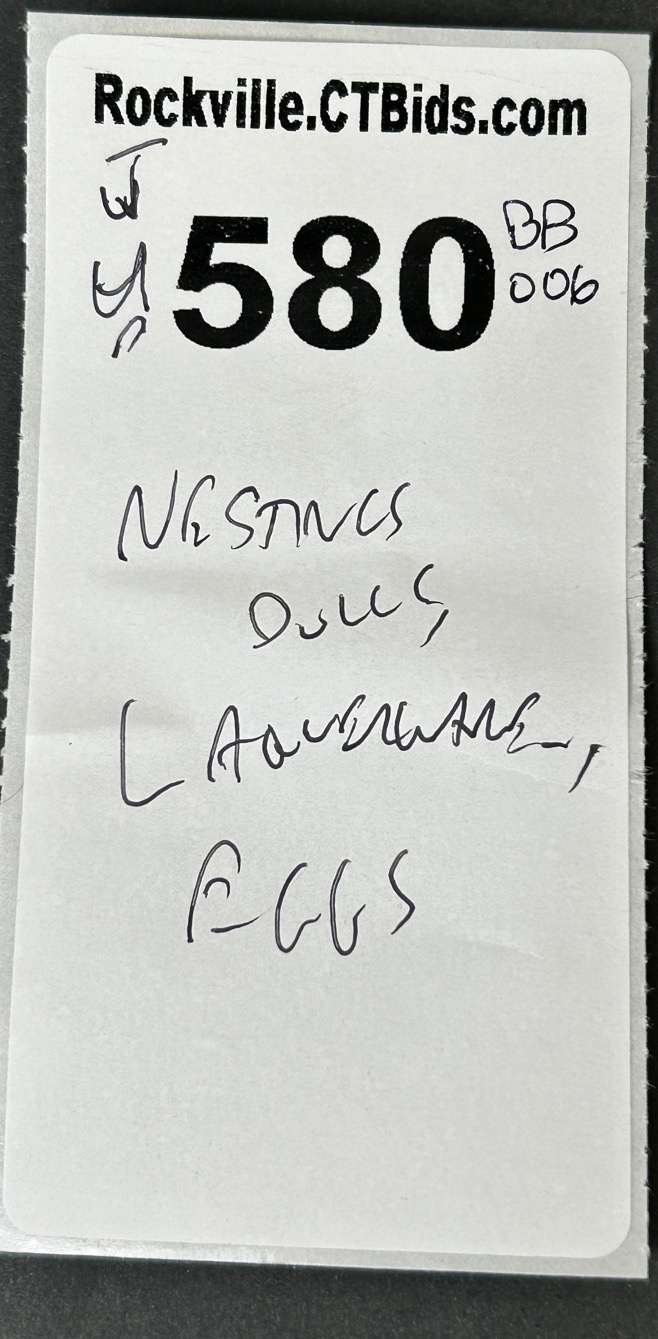 Rockville.CTBids.com
580
BB
006
NESTINGS
DOLLS,
LAQUERWARE,
EGGS